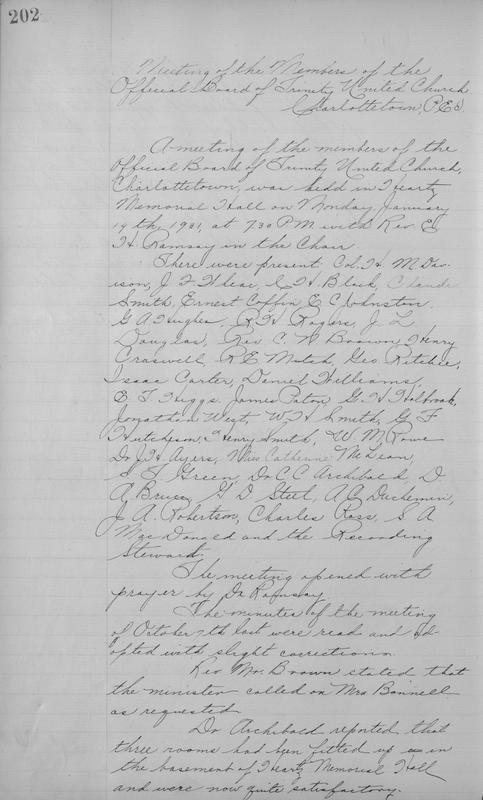 202
Meeting of the Members of the
Official Board of Trinity United Church
Charlottetown, P.E.I.
A meeting of the members of the
Official Board of Trinity United Church,
Charlottetown, was held in Heartz
Memorial Hall on Monday, January
19th, 1931, at 7.30 PM with Rev. E
H. Ramsay in the Chair
There were present Col. H. M. Dav-
ison, J F Whear, H Black, Claude
Smith, Ernest Coffin, E C Johnston
G A Hughes, R H Rogers, J L
Douglas, Rev C. H Brown, Henry
Craswell, R E Mutch, Geo Ritchie,
Isaac Carter, Daniel Williams,
E T Higgs, James Paton, G H Holbrook,
Jonathan West, W H Smith, G F
Hutcheson, Henry Smith, W. M. Rowe
Dr J H Ayers, Miss Catherine McLean,
S F Green, Dr C C Archibald, D
A Bruce, G D Steel, A G Duchemin,
J A. Robertson, Charles Ross, S A
MacDonald and the Recording
Steward.
The meeting opened with
prayer by Dr Ramsay
The minutes of the meeting
of October 7th last were read and ad-
opted with slight correction.
Rev Mr. Brown stated that
the minister called on Mrs Bonnell
as requested
Dr Archibald reported that
three rooms had been fitted up in
the basement of Heartz Memorial Hall
and were now quite satisfactory.